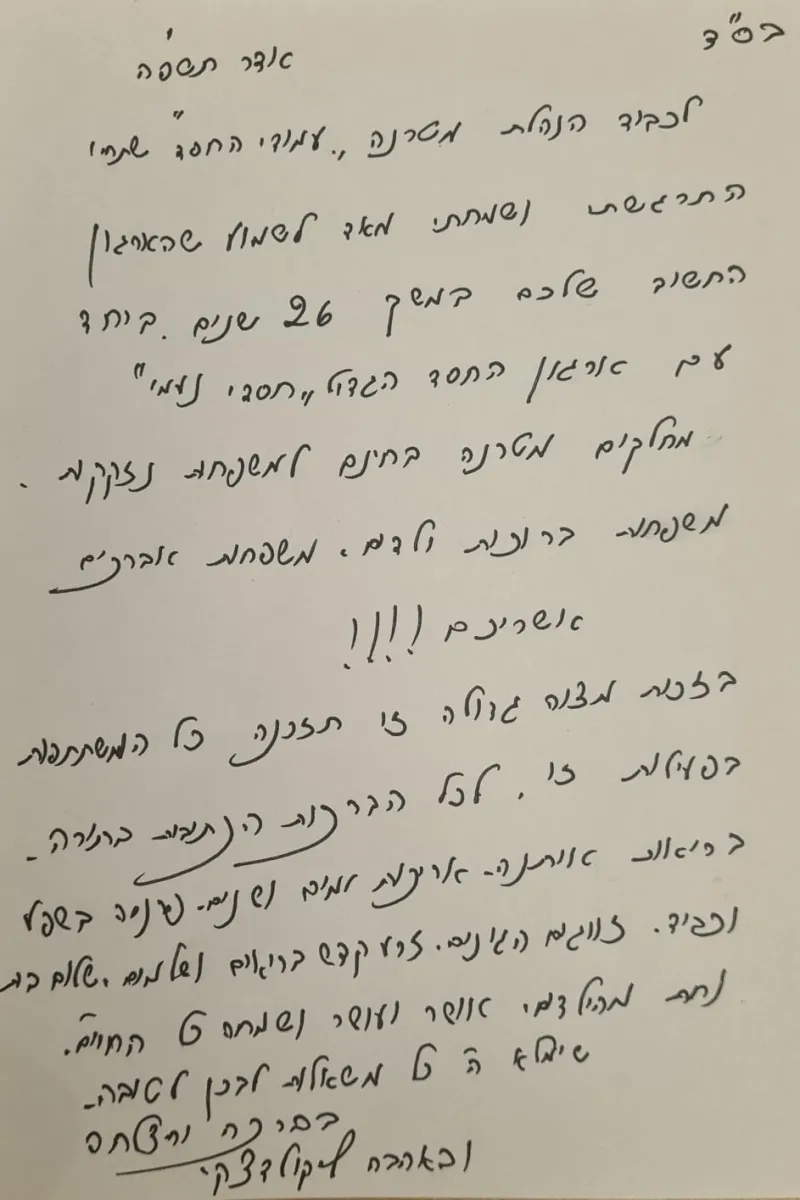 בס"ד
אדר תשפ"ה
לכבוד הנהלת מטרנה, "עמודי החסד" שתחי'
התרגשתי ושמחתי מאד לשמוע שהארגון
החשוב שלכם במשך 26 שנים. ביחד
עם ארגון החסד הגדול "חסדי נעמי"
מחלקים מטרנה בחינם למשפחות נזקקות.
משפחות ברוכות ילדים. משפחות אברכים
אשריכם !!!!
בזכות מצוה גדולה זו תזכנה כל המשתתפות
בפעילות זו, לכל הברכות הכתובות בתורה.
בריאות איתנה. אריכות ימים ושנים. פרנסה בשפע
וכבוד. זווגים הגונים. זרע קדש בריאים ושלמים. שלום בית
נחת מהילדים. אושר ועושר ושמחת כל החיים.
שימלא ה' כל משאלות לבכן לטובה.
בברכה והצלחה
ובאהבה